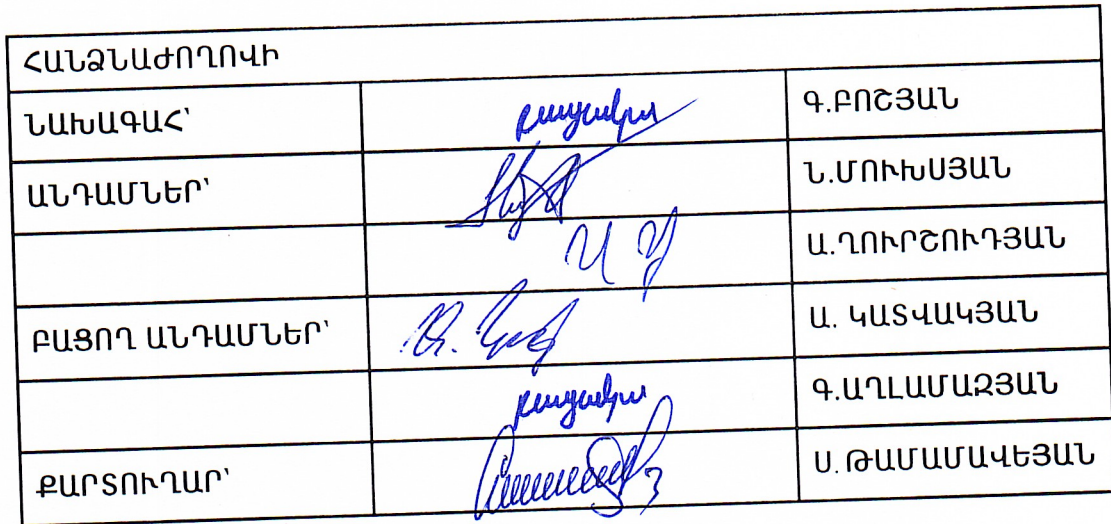 ՀԱՆՁՆԱԺՈՂՈՎԻ
ՆԱԽԱԳԱՀ՝ բացակա Գ.ԲՈՇՅԱՆ
ԱՆԴԱՄՆԵՐ՝ Ն.ՄՈՒԽՍՅԱՆ
Ա.ՂՈՒՐՇՈՒԴՅԱՆ
ԲԱՑՈՂ ԱՆԴԱՄՆԵՐ՝ Ա. ԿԱՏՎԱԿՅԱՆ
բացակա Գ.ԱՂԼԱՄԱԶՅԱՆ
ՔԱՐՏՈՒՂԱՐ՝ Ս.ԹԱՄԱՄԱՎԵՅԱՆ